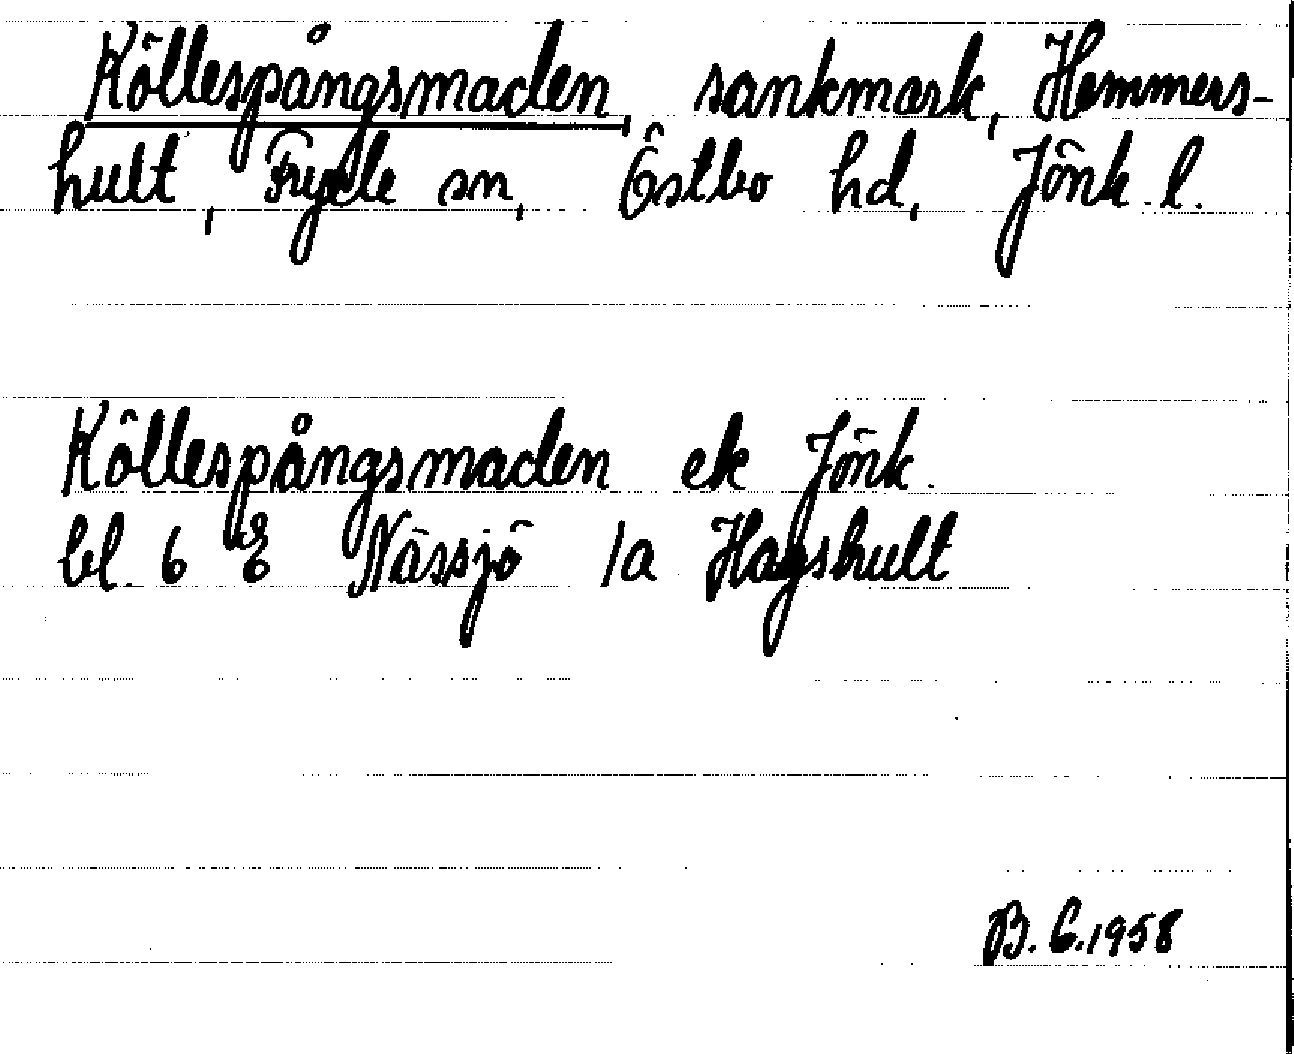 Köllespångsmaden, sankmark, Hemmers-
hult, Fryele sn, Östbo hd, Jönk. l.
Köllespångsmaden ek Jönk.
bl. 6 E Nässjö 1a Hagshult
B. G. 1958